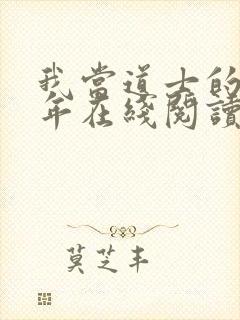 我當道士的
年在綫閱讀
莫芝丰